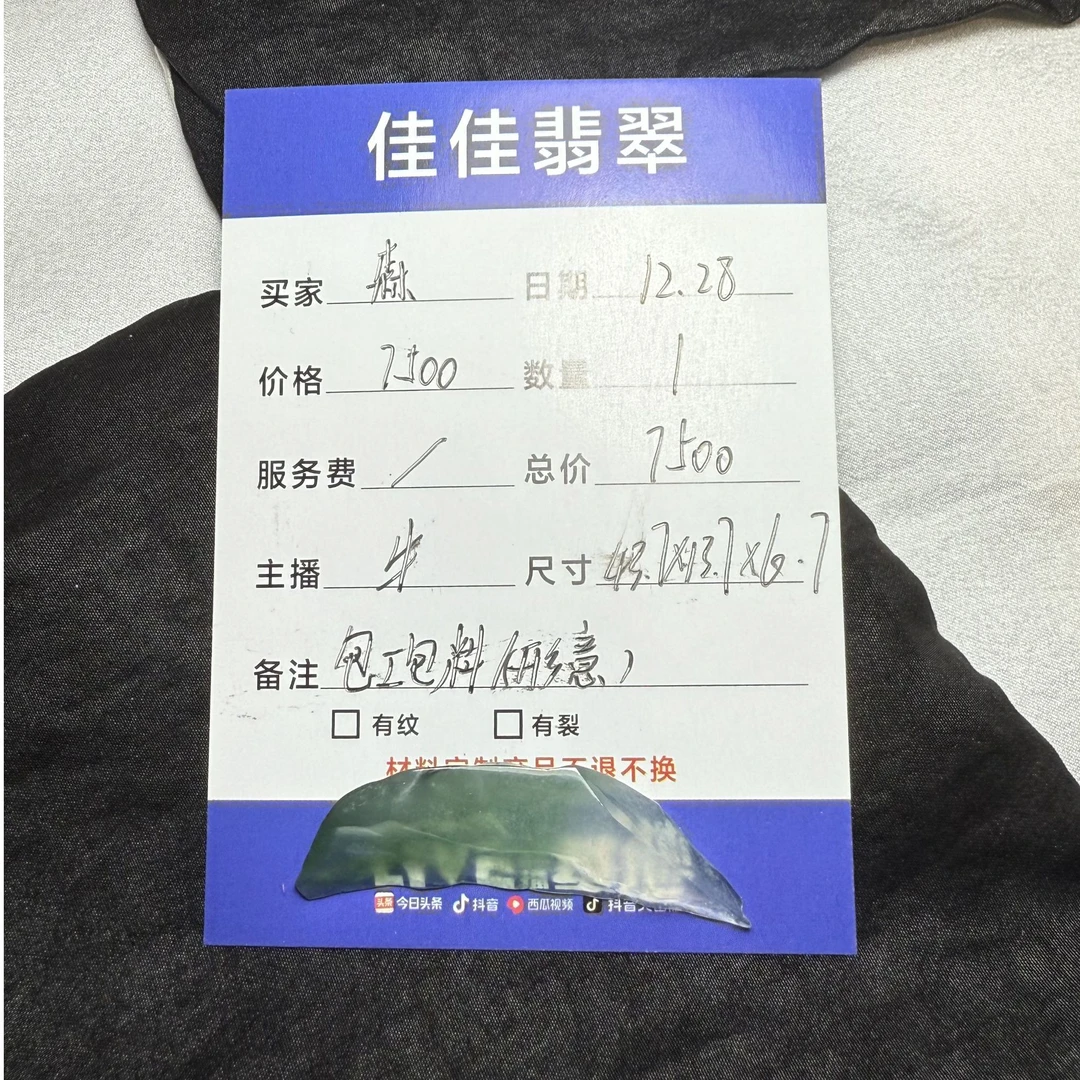 佳佳翡翠
买家 森 日期 12.28
价格 7500 数量 1
服务费 / 总价 7500
主播 牛 尺寸 43.7x13.7x6.7
备注 包工包料(形意)
有纹 有裂
材料定制产品不退不换
头条 今日头条 抖音 西瓜视频